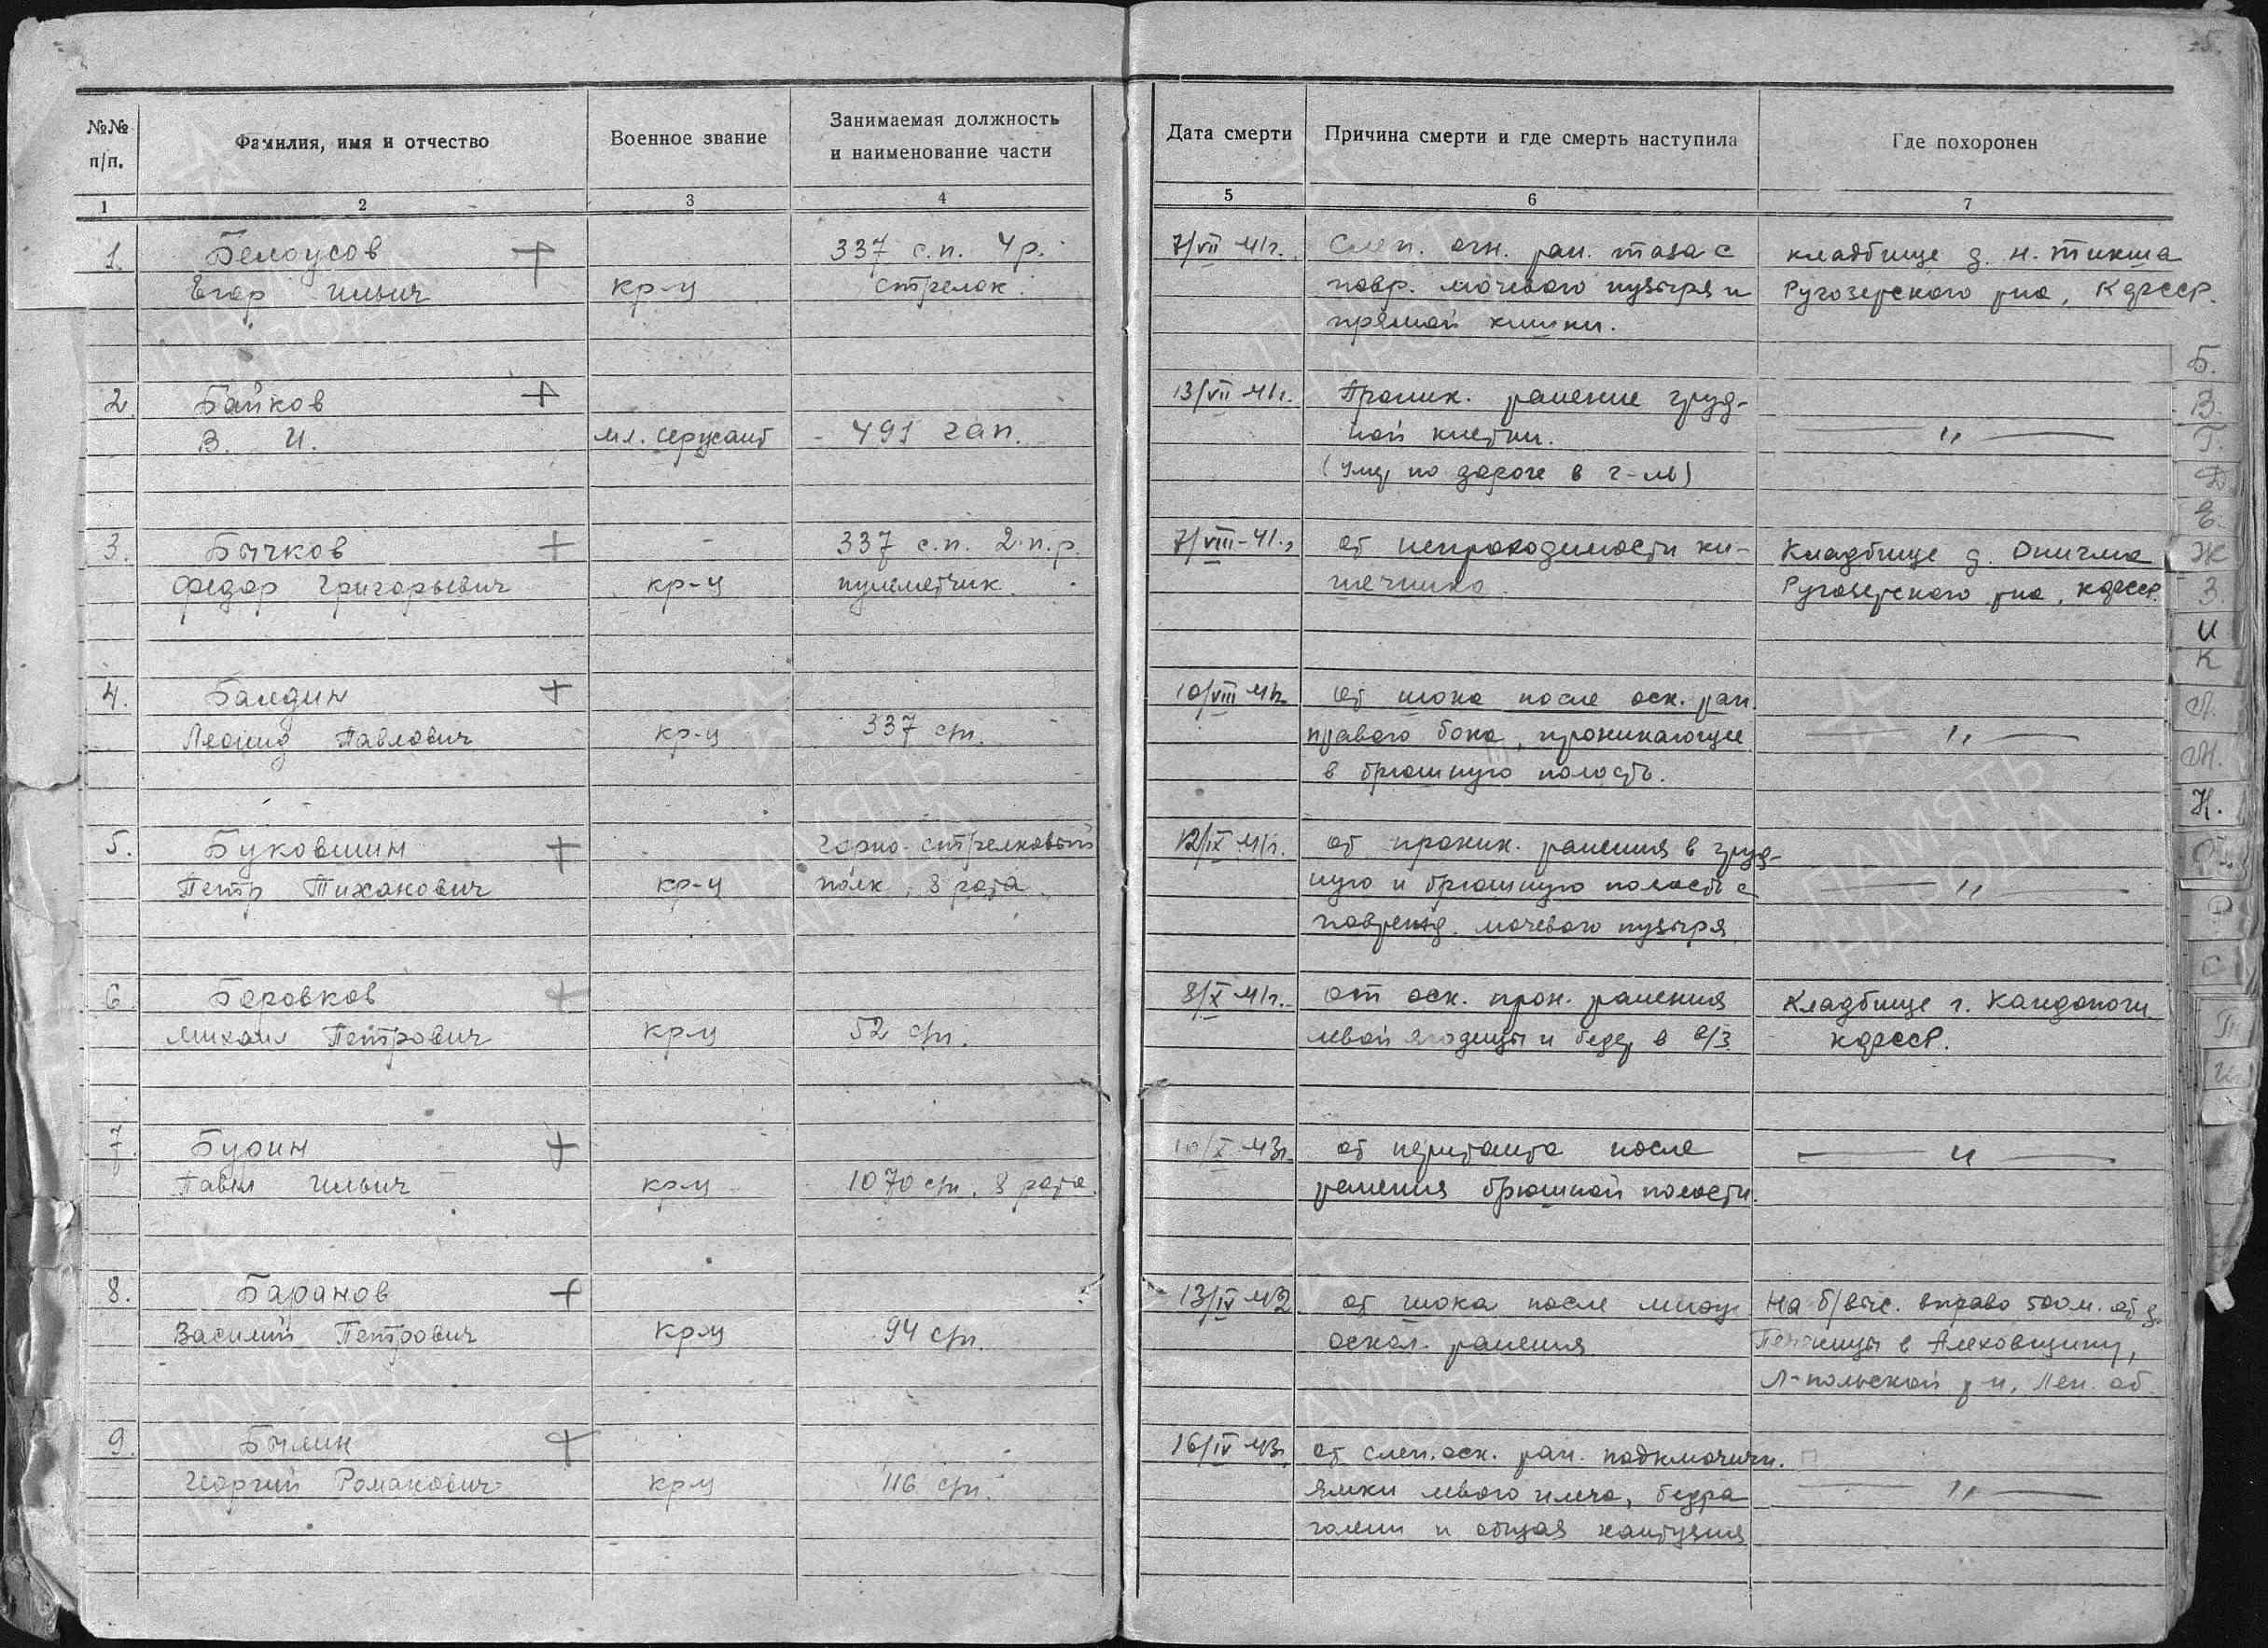 №№ п/п.
Фамилия, имя и отчество
Военное звание
Занимаемая должность
и наименование части
Дата смерти
Причина смерти и где смерть наступила
Где похоронен
1 2 3 4 5 6 7
1. Белоусов 337 с.п. 4р. 7/VII 41г. Слеп. огн. ран. таза с кладбище д. Н. Тикша
Егор Ильич кр-ц стрелок. повр. мочевого пузыря и Ругозерского р-на, КФССР.
прямой кишки.
2 Байков 13/VII 41г. Проник. ранение груд-
В. И. мл. сержант 491 гап. ной клетки. — " —
(Умер по дороге в г-ль)
3. Бычков 337 с.п. 2 п.р. 7/VIII-41г. от непроходимости ки- Кладбище д.
Федор Григорьевич кр-ц пулеметчик. шечника. Ругозерского р-на, КФССР.
4. Балдин 10/VIII 41г. от шока после оск. ран.
Леонид Павлович кр-ц 337 сп. правого бока, проникающее — " —
в брюшную полость.
5. Буковшин Горно-стрелковый 12/IX 41г. от проник. ранения в груд-
Петр Тиханович кр-ц полк, 8 рота. ную и брюшную полость с — " —
поврежд. мочевого пузыря.
6. Боровков 8/X 41г. от оск. прон. ранения Кладбище г. Кондопоги
Михаил Петрович кр-ц 52 сп. левой ягодицы и бедр. в в/3. КФССР.
7. Бурин 10/X 43г. от перитонита после — " —
Павел Ильич кр-ц 1070 сп, 8 рота. ранения брюшной полости.
8. Баранов 13/IV 42 от шока после множ. На б/выс. вправо 500 м. от д.
Василий Петрович кр-ц 94 сп. оскол. ранения в Алеховщину,
Л-польский р-н, Лен. об.
9. Былин 16/IV 43г. от слеп. оск. ран. подключичн.
Георгий Романович кр-ц 116 сп. ямки левого плеча, бедра — " —
голени и общая контузия
Б.
В.
Г.
Д.
Е.
Ж
З.
И
К
Л.
М.
Н.
О.
Р
С
Т